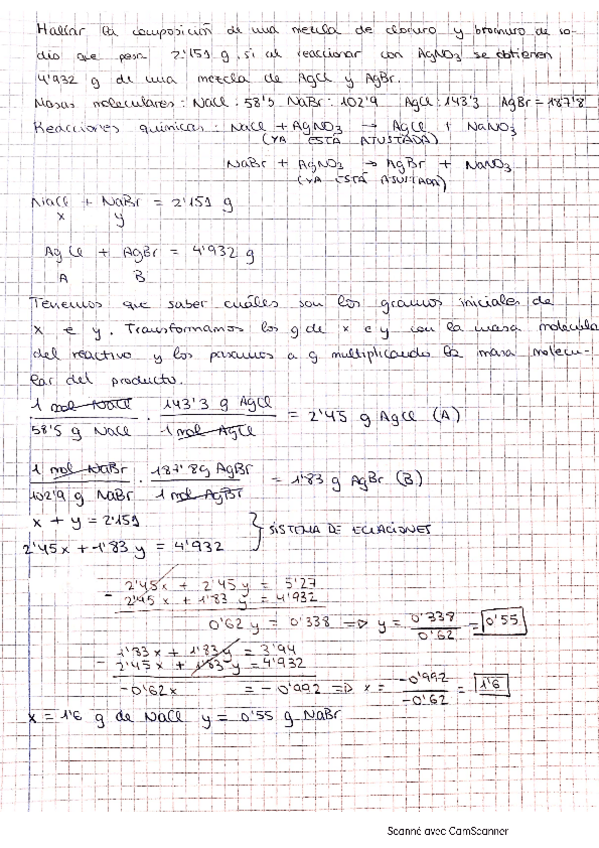 Hallar la composición de una mezcla de cloruro y bromuro de so-
dio que pesa 2'151 g, si al reaccionar con AgNO3 se obtienen
4'932 g de una mezcla de AgCl y AgBr.
Masas moleculares: NaCl: 58'5 NaBr: 102'9 AgCl: 143'3 AgBr = 187'8
Reacciones químicas: NaCl + AgNO3 → AgCl + NaNO3
(YA ESTÁ AJUSTADA)
NaBr + AgNO3 → AgBr + NaNO3
(YA ESTÁ AJUSTADA)
NaCl + NaBr = 2'151 g
x y
AgCl + AgBr = 4'932 g
A B
Tenemos que saber cuáles son los gramos iniciales de
x e y. Transformamos los g de x e y con la masa molecular
del reactivo y los pasamos a g multiplicando la masa molecu-
lar del producto.
1 mol NaCl / 58'5 g NaCl · 143'3 g AgCl / 1 mol AgCl = 2'45 g AgCl (A)
1 mol NaBr / 102'9 g NaBr · 187'8g AgBr / 1 mol AgBr = 1'83 g AgBr (B)
x + y = 2'151
2'45x + 1'83 y = 4'932 } SISTEMA DE ECUACIONES
2'45x + 2'45 y = 5'27
- 2'45 x + 1'83 y = 4'932
0'62 y = 0'338 => y = 0'338 / 0'62 = 0'55
1'83 x + 1'83 y = 3'94
- 2'45 x + 1'83 y = 4'932
-0'62 x = -0'992 => x = -0'992 / -0'62 = 1'6
x = 1'6 g de NaCl y = 0'55 g NaBr
Scanné avec CamScanner